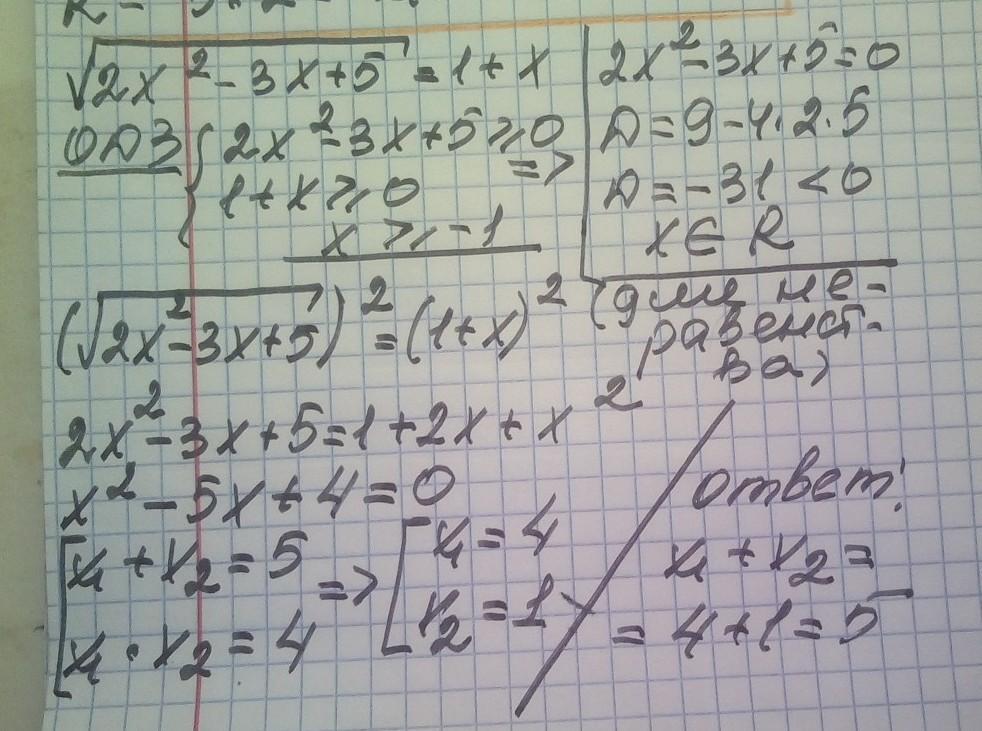 √2x²-3x+5 = 1+x
ОДЗ { 2x²-3x+5 ⩾ 0
1+x ⩾ 0 =>
x ⩾ -1
2x²-3x+5=0
D=9-4·2·5
D=-31 <0
x∈R
(для не-
равенст-
ва)
(√2x²-3x+5)² = (1+x)²
2x²-3x+5=1+2x+x²
x²-5x+4=0
[ x₁+x₂=5 => [ x₁=4
x₁·x₂=4 x₂=1
ответ:
x₁+x₂=
=4+1=5